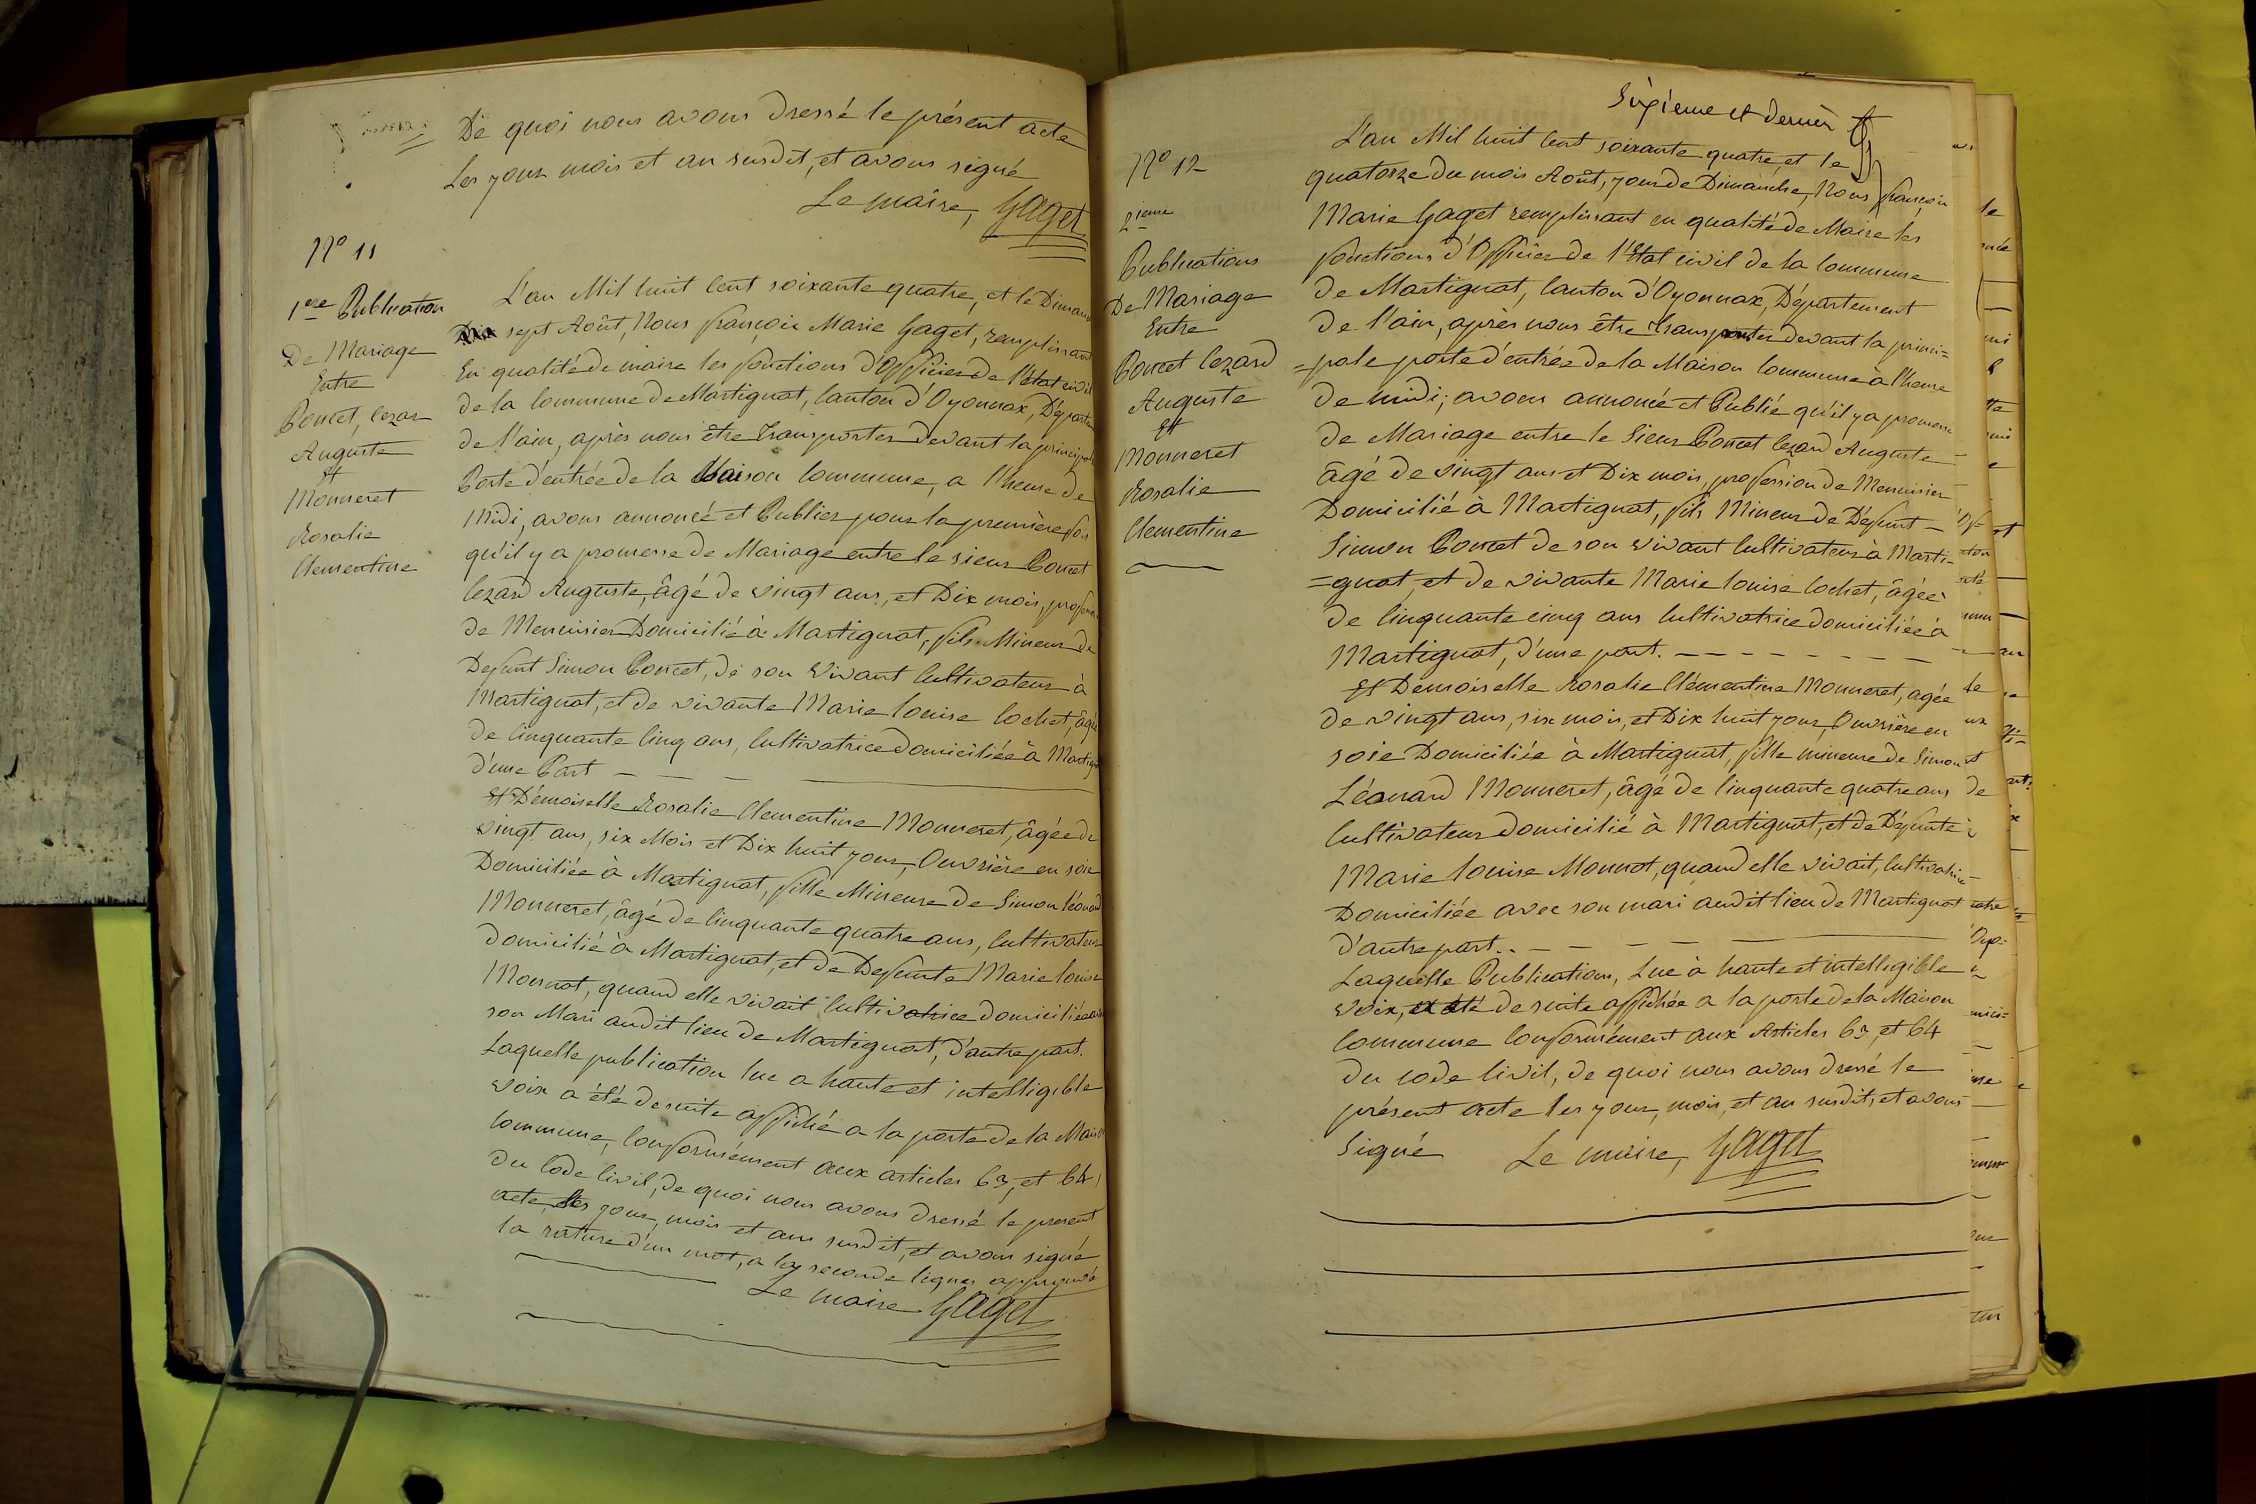 De quoi nous avons dressé le présent acte
les jour mois et an susdit, et avons signé
Le maire, Gaget
N° 11
1ere Publication
De Mariage
Entre
Poncet, Cezar
Auguste
Et
Monneret
Rosalie
Clementine
L'an Mil huit Cent soixante quatre, et le Diman
sept Août, Nous françois Marie Gaget, remplissant
En qualité de maire les fonctions d'Officier de l'état civil
de la Commune de Martignat, Canton d'Oyonnax, Départem
de l'ain, après nous être transporter devant la principale
Porte d'entrée de la Maison Commune, a l'heure de
Midi, avons annoncé et Publier pour la première fois
qu'il y a promesse de Mariage entre le sieur Poncet
Cezard Auguste, âgé de vingt ans, et Dix mois, profession
de Menuisier Domicilié à Martignat, fils Mineur de
Defunt Simon Poncet, de son vivant Cultivateur à
Martignat, et de vivante Marie Louise Cochet, âgée
de Cinquante Cinq ans, Cultivatrice Domiciliée à Martign
d'une Part
Et Démoiselle Rosalie Clementine Monneret, âgée de
vingt ans, six Mois et Dix huit jour, Ouvrière en soie
Domiciliée à Martignat, fille Mineure de Simon Léonard
Monneret, âgé de Cinquante quatre ans, Cultivateur
domicilié à Martignat, et de Defunte Marie Louise
Monnot, quand elle vivait Cultivatrice domiciliée avec
son Mari audit lieu de Martignat, d'autre part.
Laquelle publication lue a haute et intelligible
voix a été de suite affiché a la porte de la Maison
Commune, Conformément aux articles 63, et 64,
du Code Civil, de quoi nous avons dressé le present
acte, les jour, mois et ans susdit, et avons signé
la rature d'un mot, a la seconde lignes approuvé
Le maire Gaget
Sixième et dernier
N° 12
2ieme
Publications
De Mariage
Entre
Poncet Cezard
Auguste
Et
Monneret
Rosalie
Clementine
L'an Mil huit Cent soixante quatre et le
quatorze du mois Août, jour de Dimanche, Nous françois
Marie Gaget remplissant en qualité de Maire les
fonctions d'Officier de l'Etat civil de la Commune
de Martignat, Canton d'Oyonnax, Département
de l'ain, après nous être transporter devant la princi=
=pale porte d'entrée de la Maison Commune à l'heure
de midi; avons annoncé et Publié qu'il y a promesse
de Mariage entre le Sieur Poncet Cezard Auguste
âgé de vingt ans et Dix mois, profession de Menuisier
Domicilié à Martignat, fils Mineur de Défunt
Simon Poncet de son vivant Cultivateur à Marti-
=gnat, et de vivante Marie Louise Cochet, âgée
de Cinquante cinq ans Cultivatrice domiciliée à
Martignat, d'une part.
Et Démoiselle Rosalie Clémentine Monneret, agée
de vingt ans, six mois, et Dix huit jour, Ouvrière en
soie Domiciliée à Martignat, fille mineure de Simon
Léonard Monneret, âgé de Cinquante quatre ans
Cultivateur domicilié à Martignat, et de Défunte
Marie Louise Monnot, quand elle vivait, Cultivatrice
Domiciliée avec son mari audit lieu de Martignat
d'autre part.
Laquelle Publications, Lue à haute et intelligible
voix, a été de suite affichée a la porte de la Maison
Commune Conformément aux Articles 63, et 64
du code Civil, de quoi nous avons dressé le
présent acte les jour, mois, et an susdit, et avons
Signé Le maire, Gaget